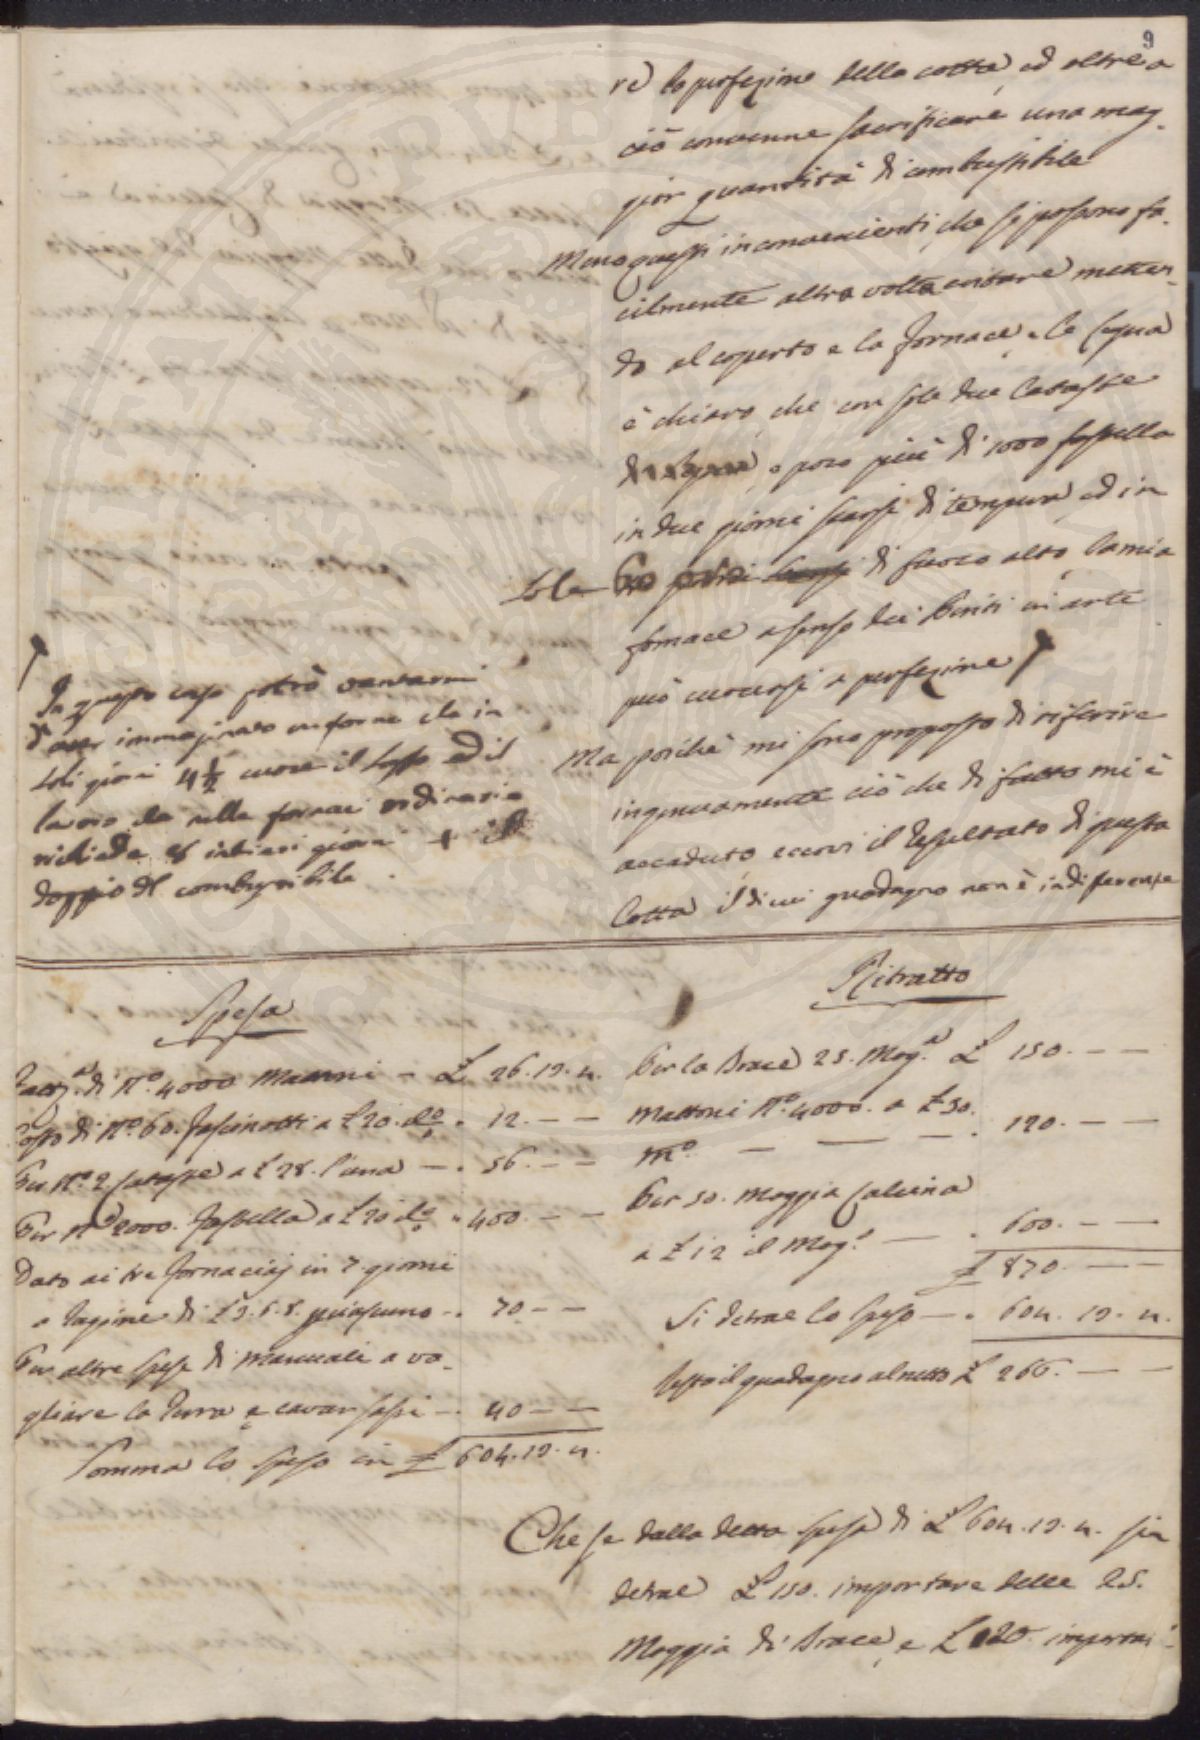 9
re la perfezione della cotta, ed oltre a
ciò convenne sacrificare una mag-
gior quantità di combustibile
Meno questi inconvenienti, che si possono fa-
cilmente altra volta evitare metten-
do al coperto e la fornace, e le legna
è chiaro, che con sole due Cataste
di legna, e poco più di 1000 fastella
in due giorni scarsi di tempura ed in
sole di fuoco alto, la mia
fornace a senso dei Periti in arte
può cuocersi a perfezione
In questo caso potrò vantarmi
d'aver immaginato un forno che in
soli giorni 4½ cuoce il sasso ed il
lavoro che nelle fornaci ordinarie
richiede 8 intieri giorni + il
doppio di combustibile.
Ma poichè mi sono proposto di riferire
ingenuamente ciò che di fatto mi è
accaduto, eccovi il resultato di questa
Cotta il di cui guadagno non è indiferente
Spesa
di N.º 4000 Mattoni — £ 26.19.4
Costo di N.º 60. fascinotti a £ 20. d.º " 12. — —
Per N.º 2 Cataste a £ 28. l'una — " 56. — —
Per N.º 2000. fastella a £ 20 d.º " 400. — —
Dato ai tre fornaciaj in 7 giorni
a ragione di £ 3.6.8. ciascuno — " 70 — —
Per altre spese di manuali a va-
gliare la terra e cavar sassi — " 40 — —
Somma la spesa in £ 604.19.4.
Ritratto
Per la Brace 25. Mog.ª £ 150. — —
Mattoni N.º 4000. a £ 30.
m.º — — — " 120. — —
Per 50. Moggia Calcina
a £ 12 il Mog.º — " 600. — —
£ 870. — —
Si detrae la spesa — " 604. 19. 4.
Resta il guadagno al netto £ 266. — —
Che se dalla detta spesa di £ 604.19.4. si
detrae £ 150. importare delle 25.
Moggia di Brace, e £ 120. importar